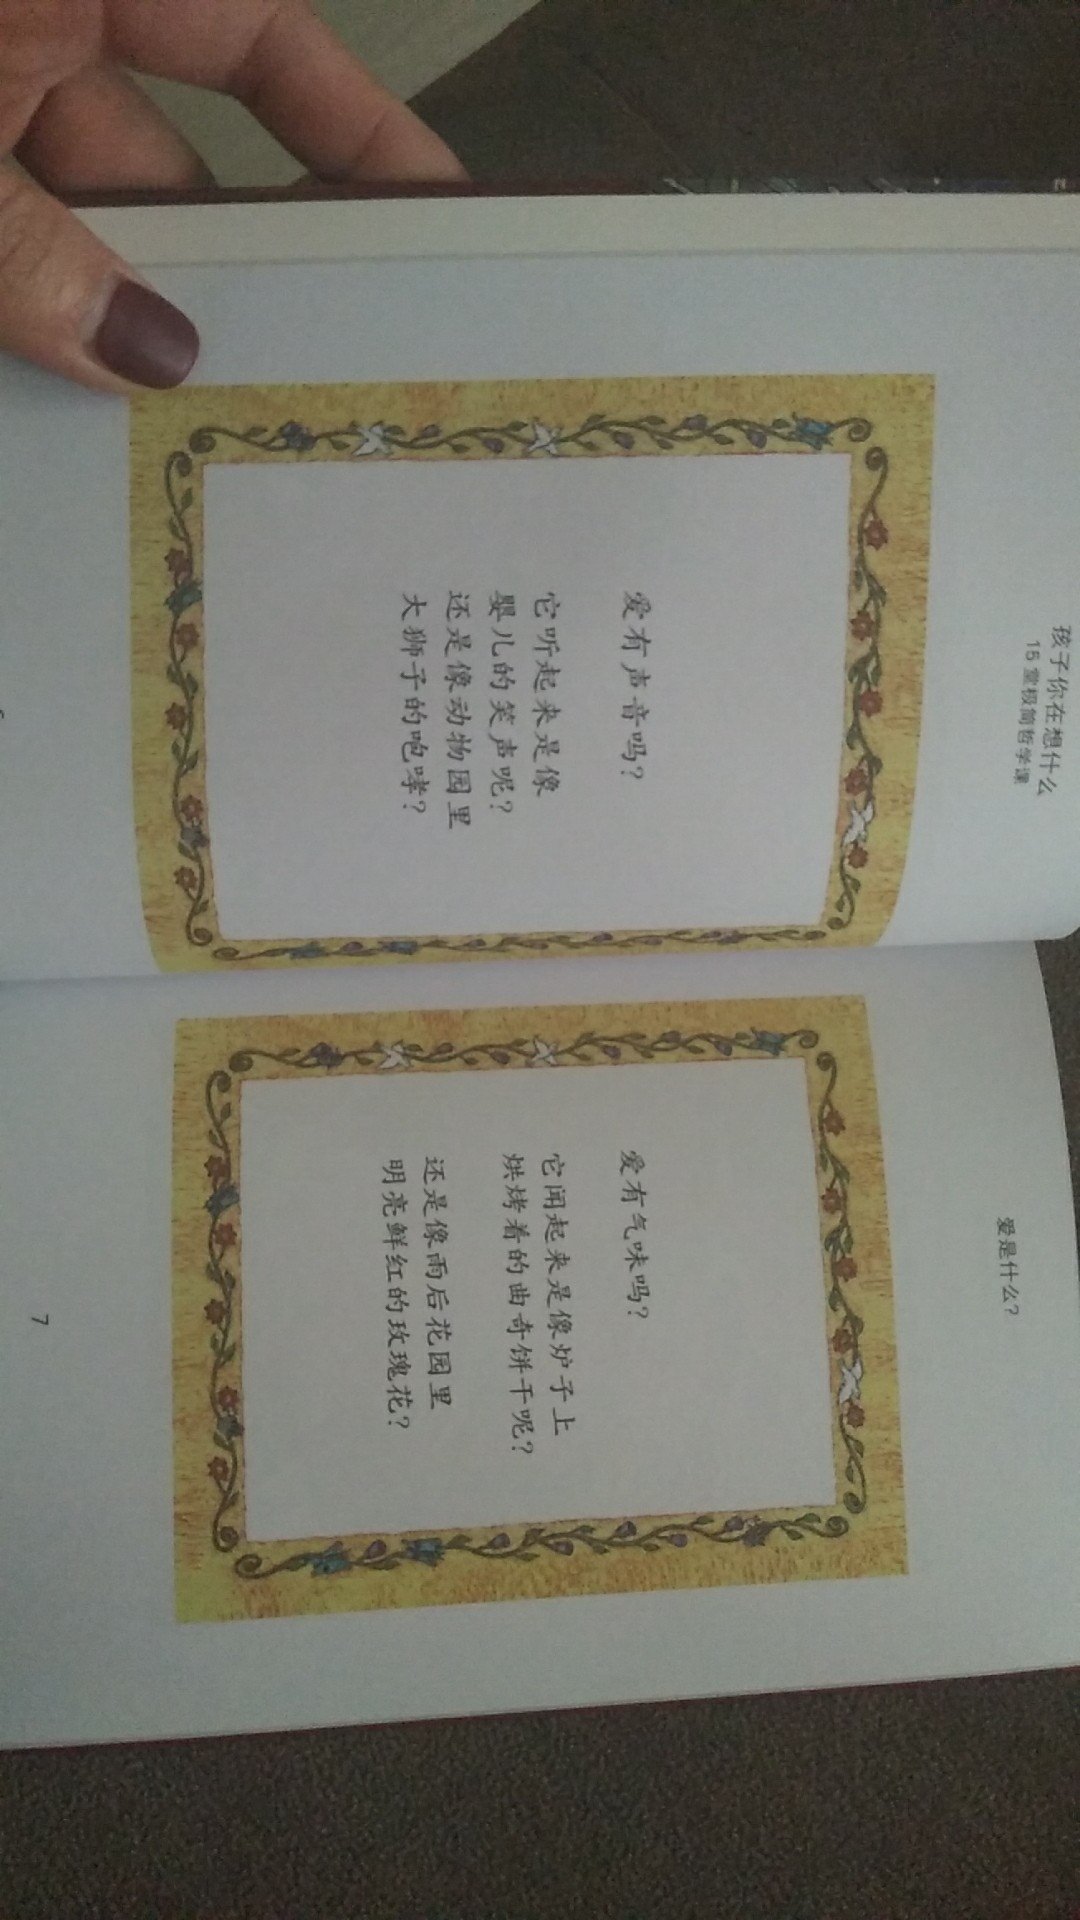 孩子你在想什么
15 堂极简哲学课
爱有声音吗?
它听起来是像
婴儿的笑声呢?
还是像动物园里
大狮子的咆哮?
爱是什么?
爱有气味吗?
它闻起来是像炉子上
烘烤着的曲奇饼干呢?
还是像雨后花园里
明亮鲜红的玫瑰花?
7